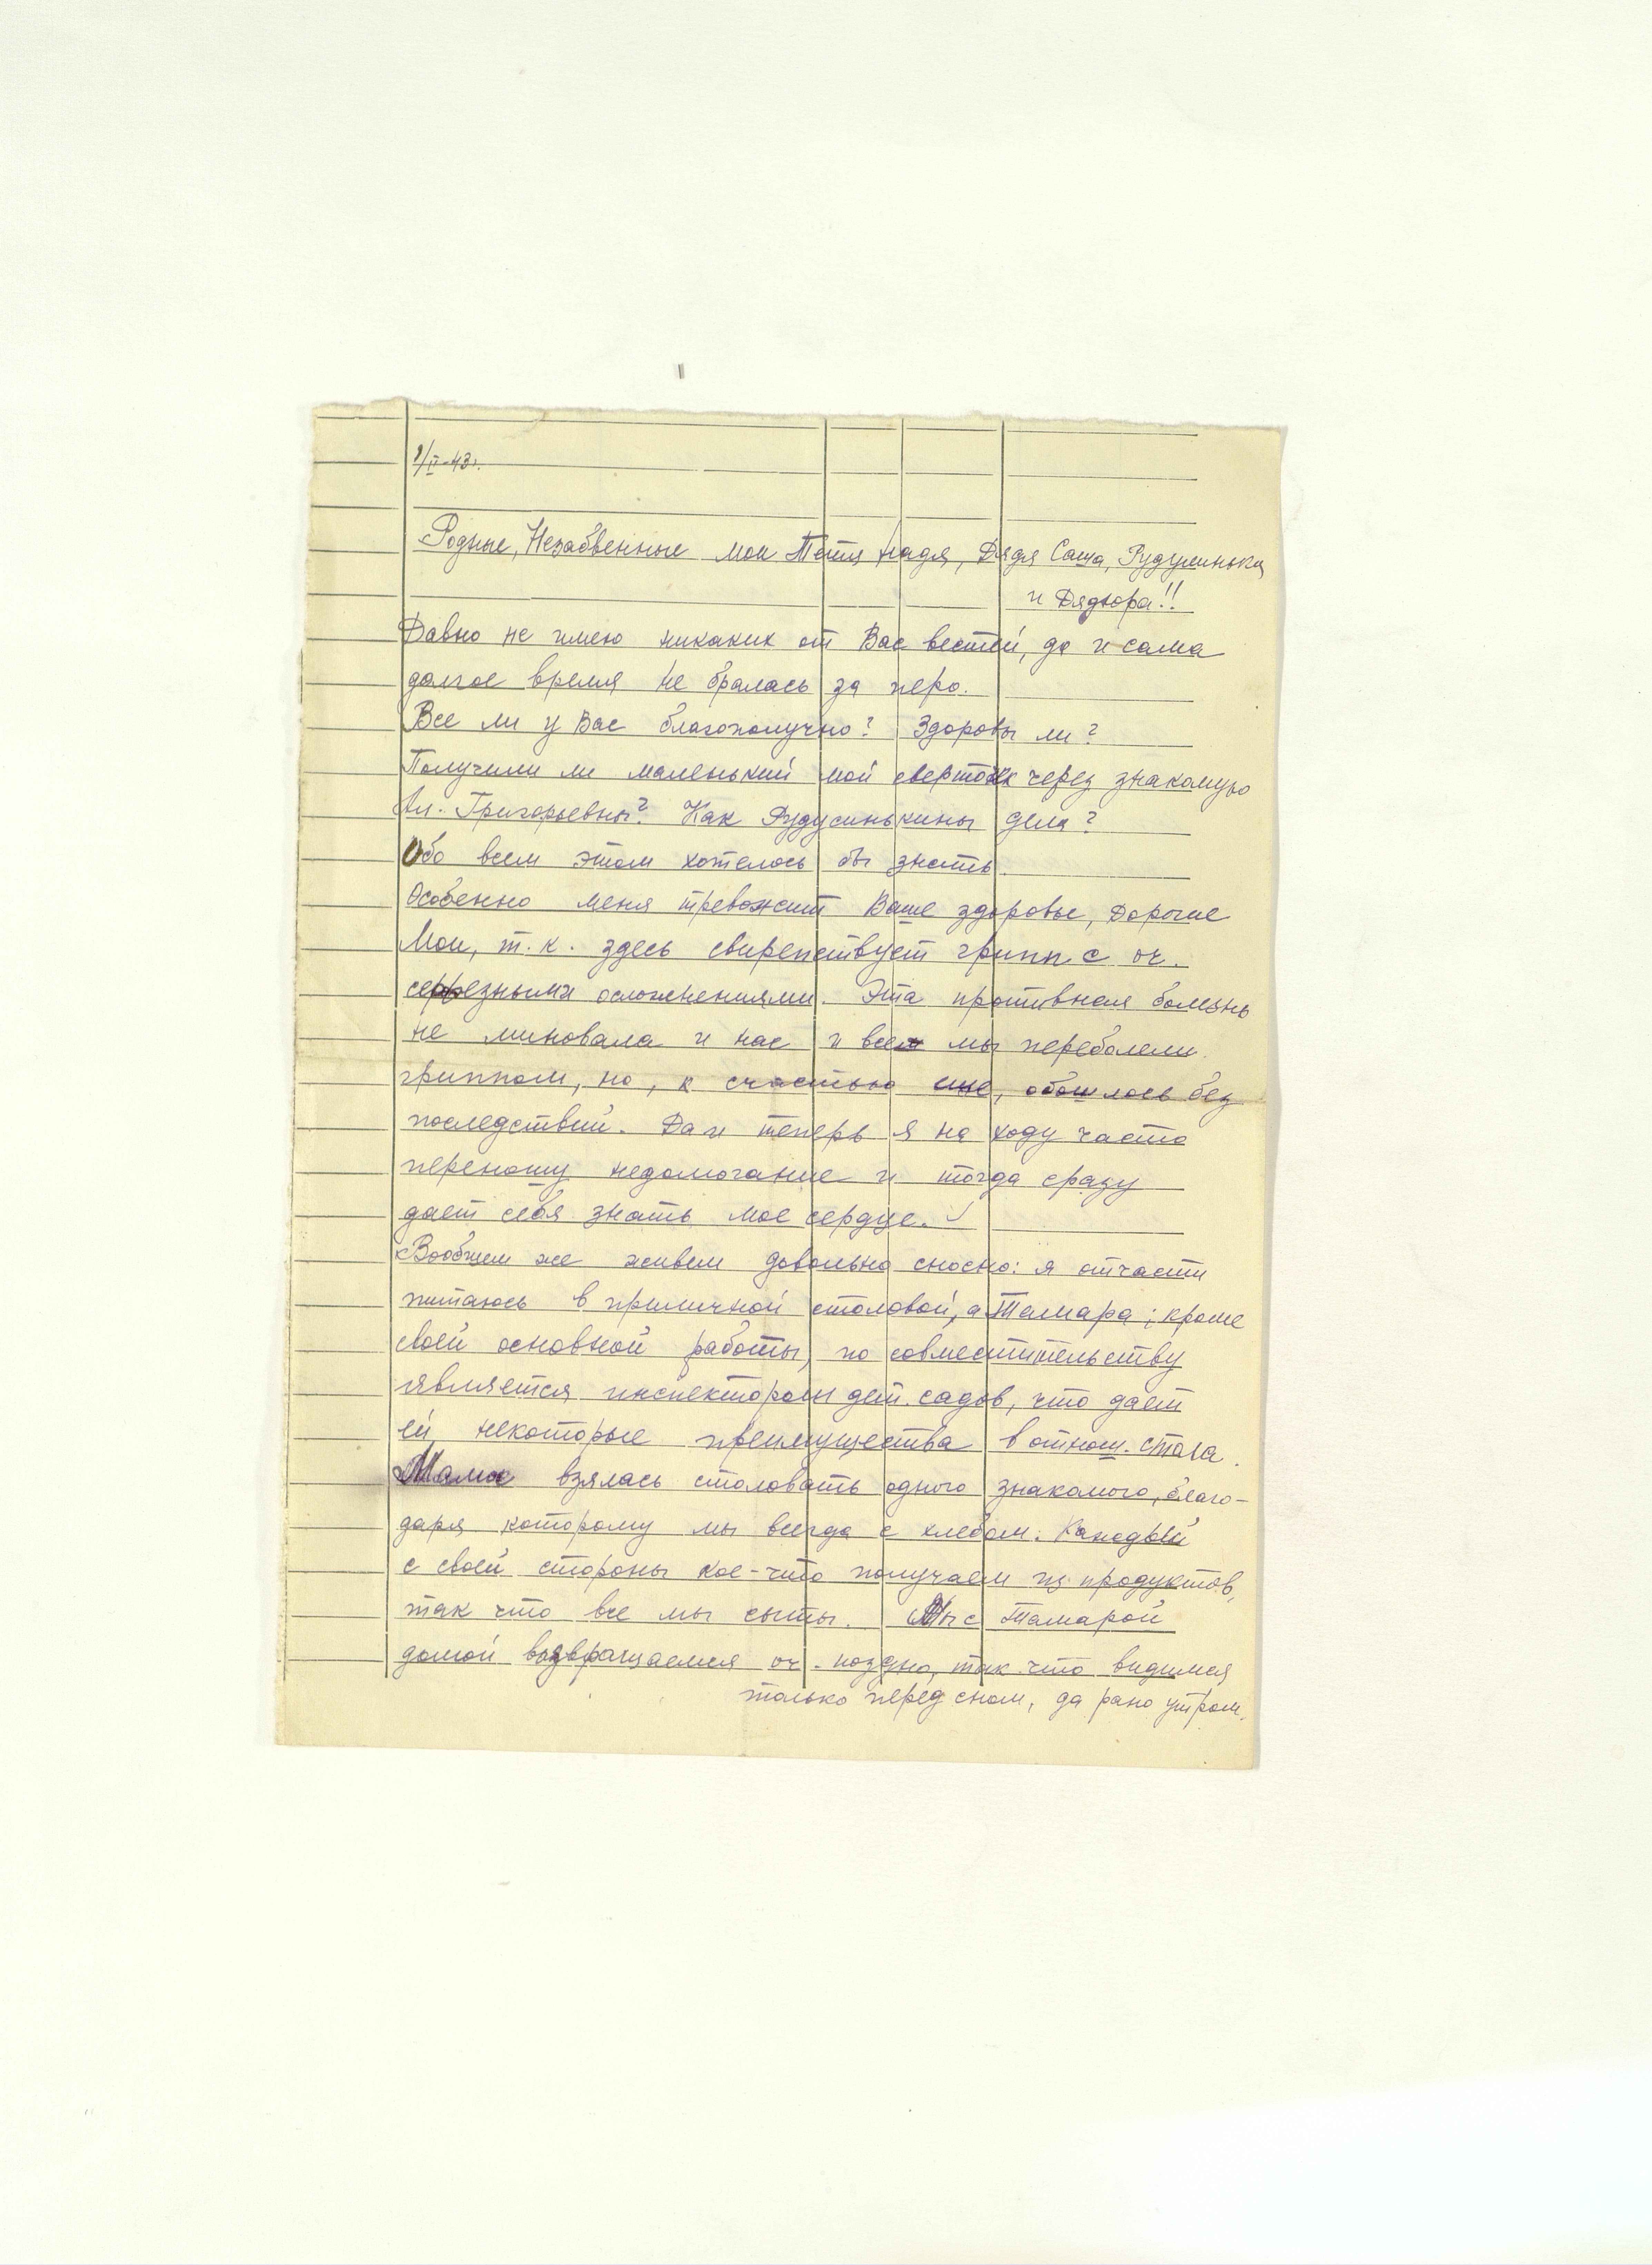 9/II-43г.
Родные, Незабвенные мои Тетя Надя, Дядя Саша, Рудусинька
и Дядюра!!
Давно не имею никаких от Вас вестей, да и сама
долгое время не бралась за перо.
Все ли у Вас благополучно? Здоровы ли?
Получили ли маленький мой сверток через знакомую
Ал. Григорьевны? Как Рудусинькины дела?
Обо всем этом хотелось бы знать.
Особенно меня тревожит Ваше здоровье, Дорогие
Мои, т.к. здесь свирепствует грипп с оч.
серьезными осложнениями. Эта противная болезнь
не миновала и нас и все мы переболели
гриппом, но, к счастью еще, обошлось без
последствий. Да и теперь я на ходу часто
переношу недомогание и тогда сразу
дает себя знать мое сердце.
Вообщем же живем довольно сносно: я отчасти
питаюсь в приличной столовой, а Тамара; кроме
своей основной работы, по совместительству
является инспектором дет. садов, что дает
ей некоторые преимущества в отнош. стола.
Мама взялась столовать одного знакомого, благо-
даря которому мы всегда с хлебом. Каждый
с своей стороны кое-что получаем из продуктов,
так что все мы сыты. Мы с Тамарой
домой возвращаемся оч. поздно, так что видимся
только перед сном, да рано утром.